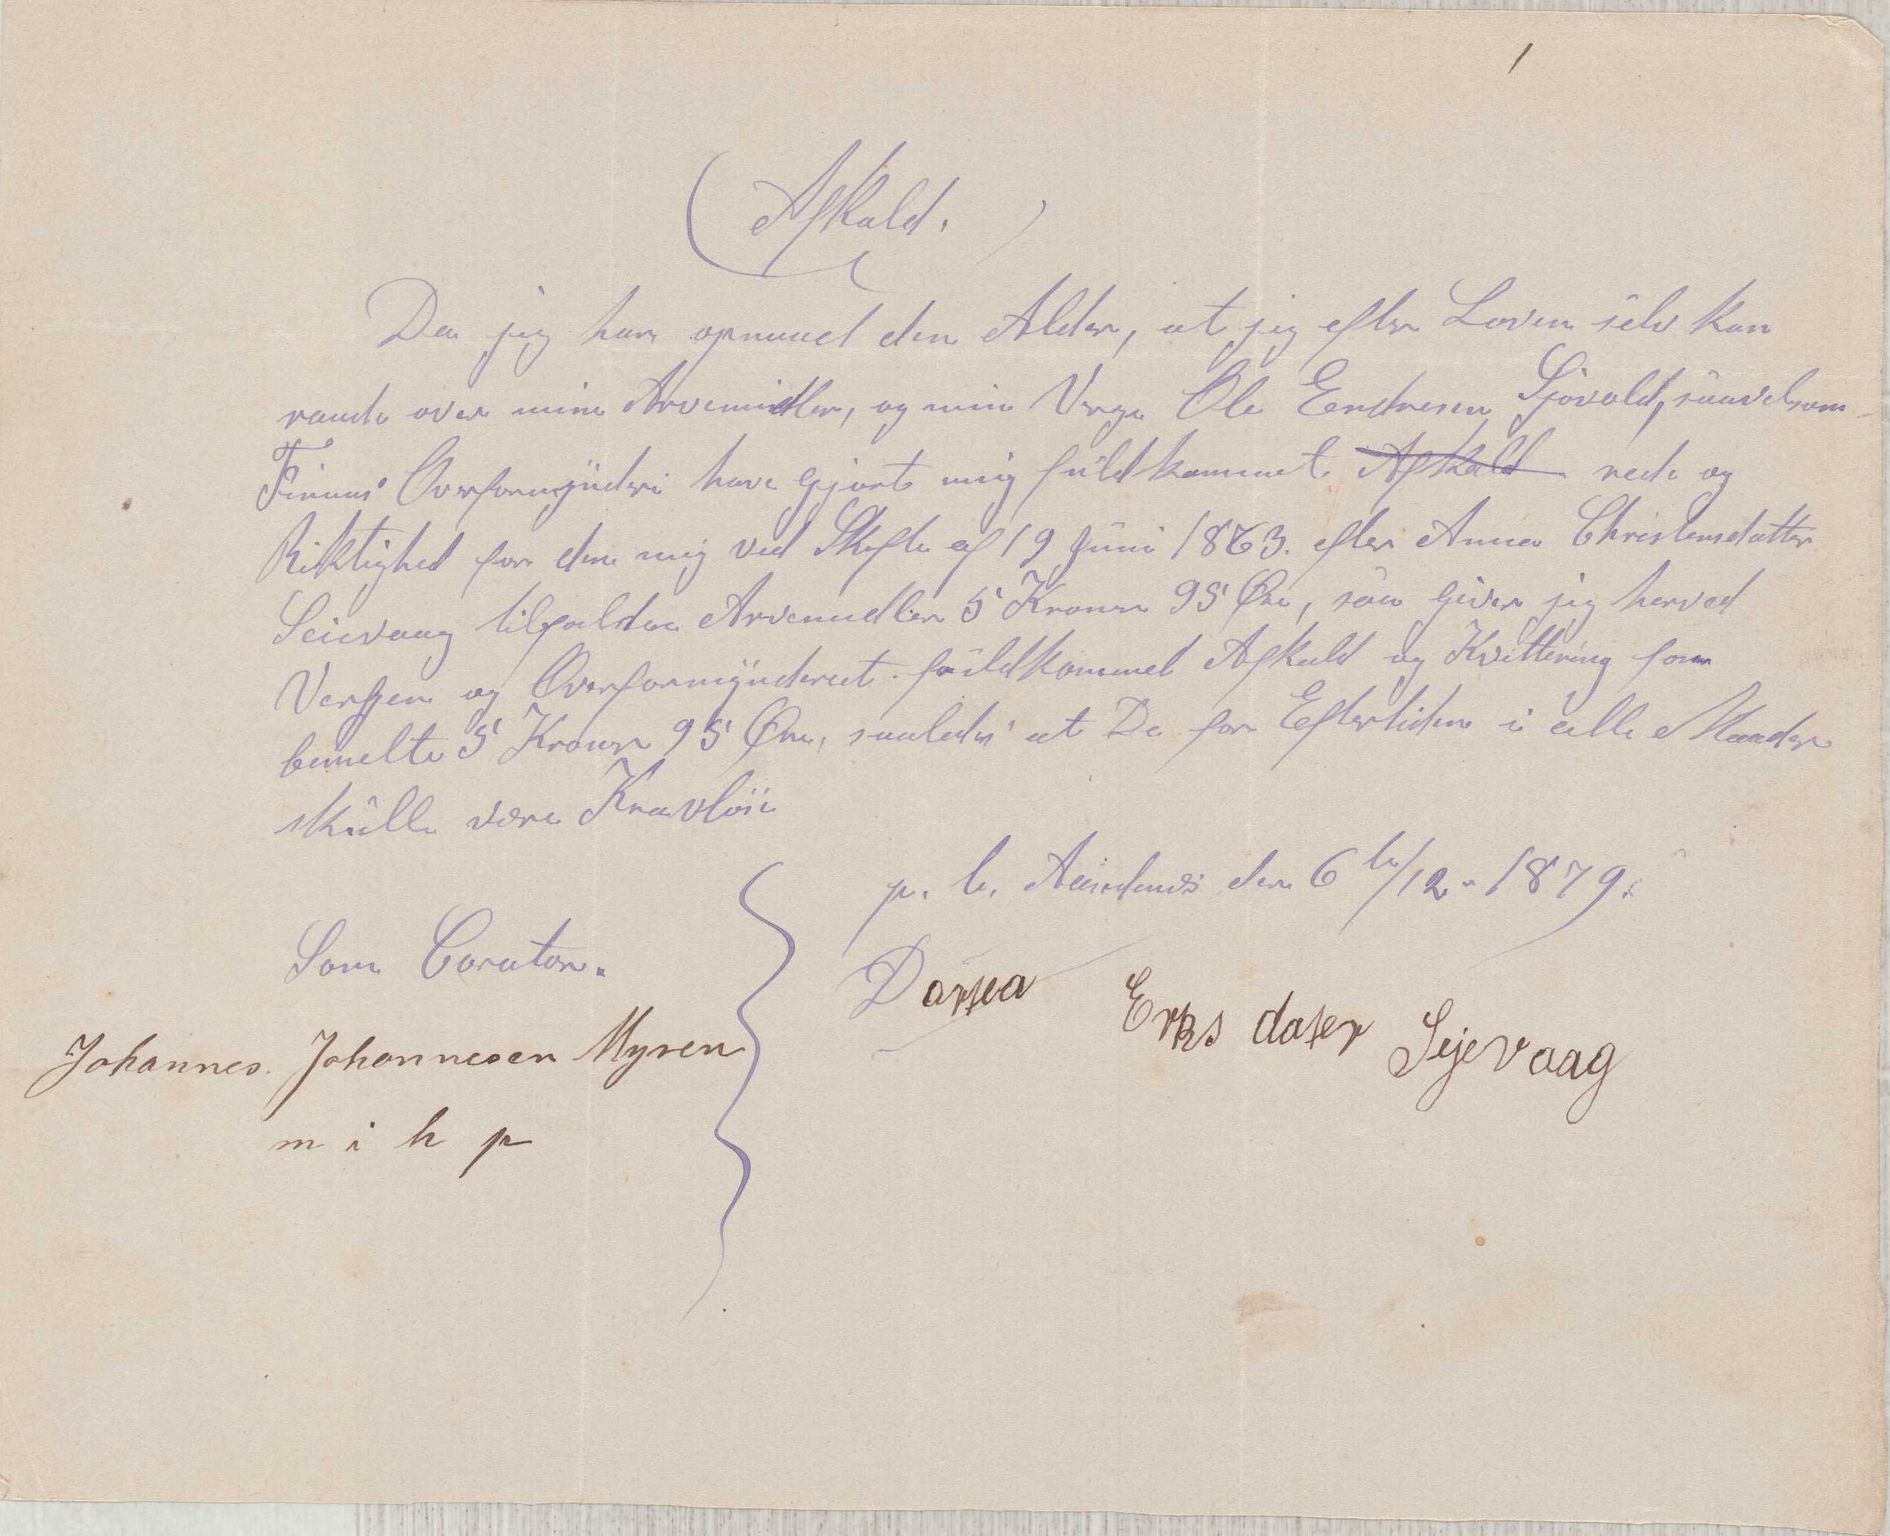 1
Afkald.
Da jeg har opnaaet den Alder, at jeg efter Loven selv kan
raade over mine Arvemidler, og min Verge Ole Endresen Sjovold, saavelsom
Finaas Overformynderi have gjort mig fuldkommet Afkald rede og
Riktighed for den mig ved Skifte af 19 Juni 1863. efter Anna Christensdatter
Seievaag tilfaldne Arvemidler 5 Kroner 95 Øre, saa giver jeg herved
Vergen og Overformynderiet fuldkommed Afkald og Kvittering for
bemelte 5 Kroner 95 Øre, saaledes at De for Eftertiden i alle Maader
skulle være Kravløse
p. t. den 6te/12 - 1879.
Som Curator.
Dortea Erks dater Sejevaag
Johannes Johannesen Myren
m i h p